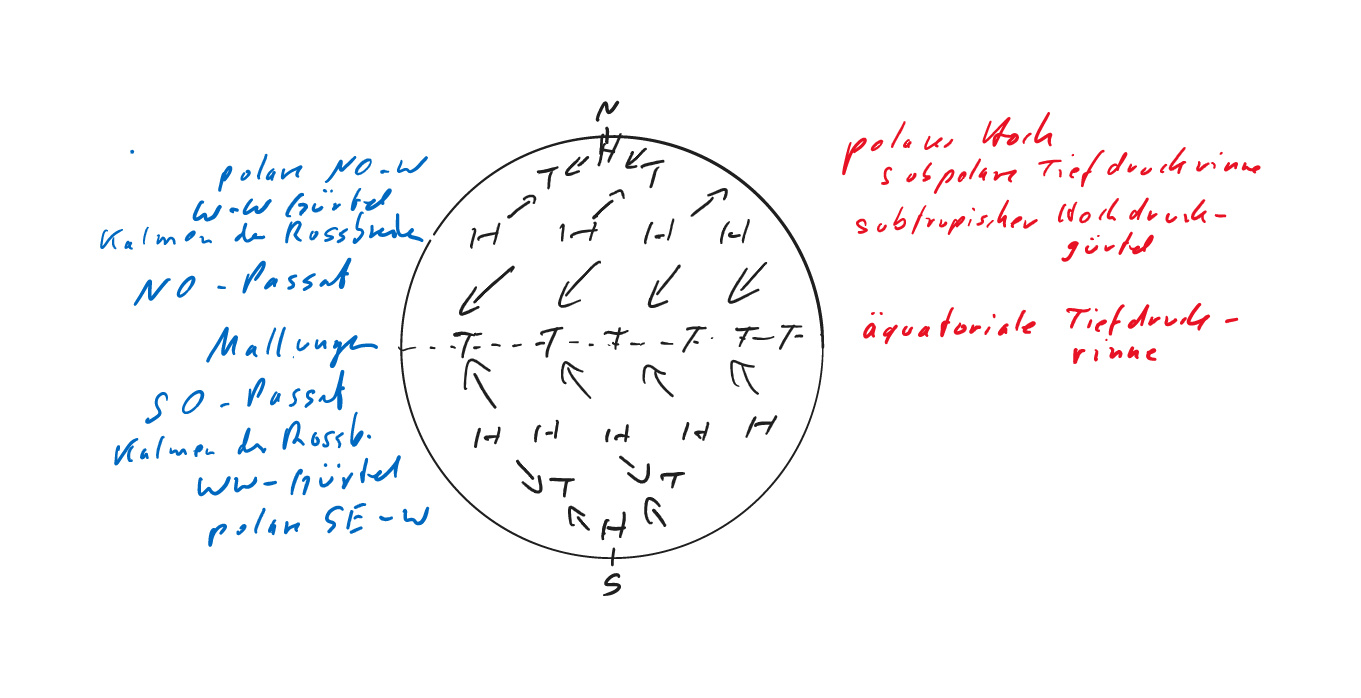 N
polare NO-W
W-W Gürtel
Kalmen der Rossbreiten
NO-Passat
Mallungen
SO-Passat
Kalmen der Rossb.
WW-Gürtel
polare SE-W
H
T T
H H H H
T T T T T T
H H H H H
T T
H
S
polares Hoch
subpolare Tiefdruckrinne
subtropischer Hochdruck-
gürtel
äquatoriale Tiefdruck-
rinne